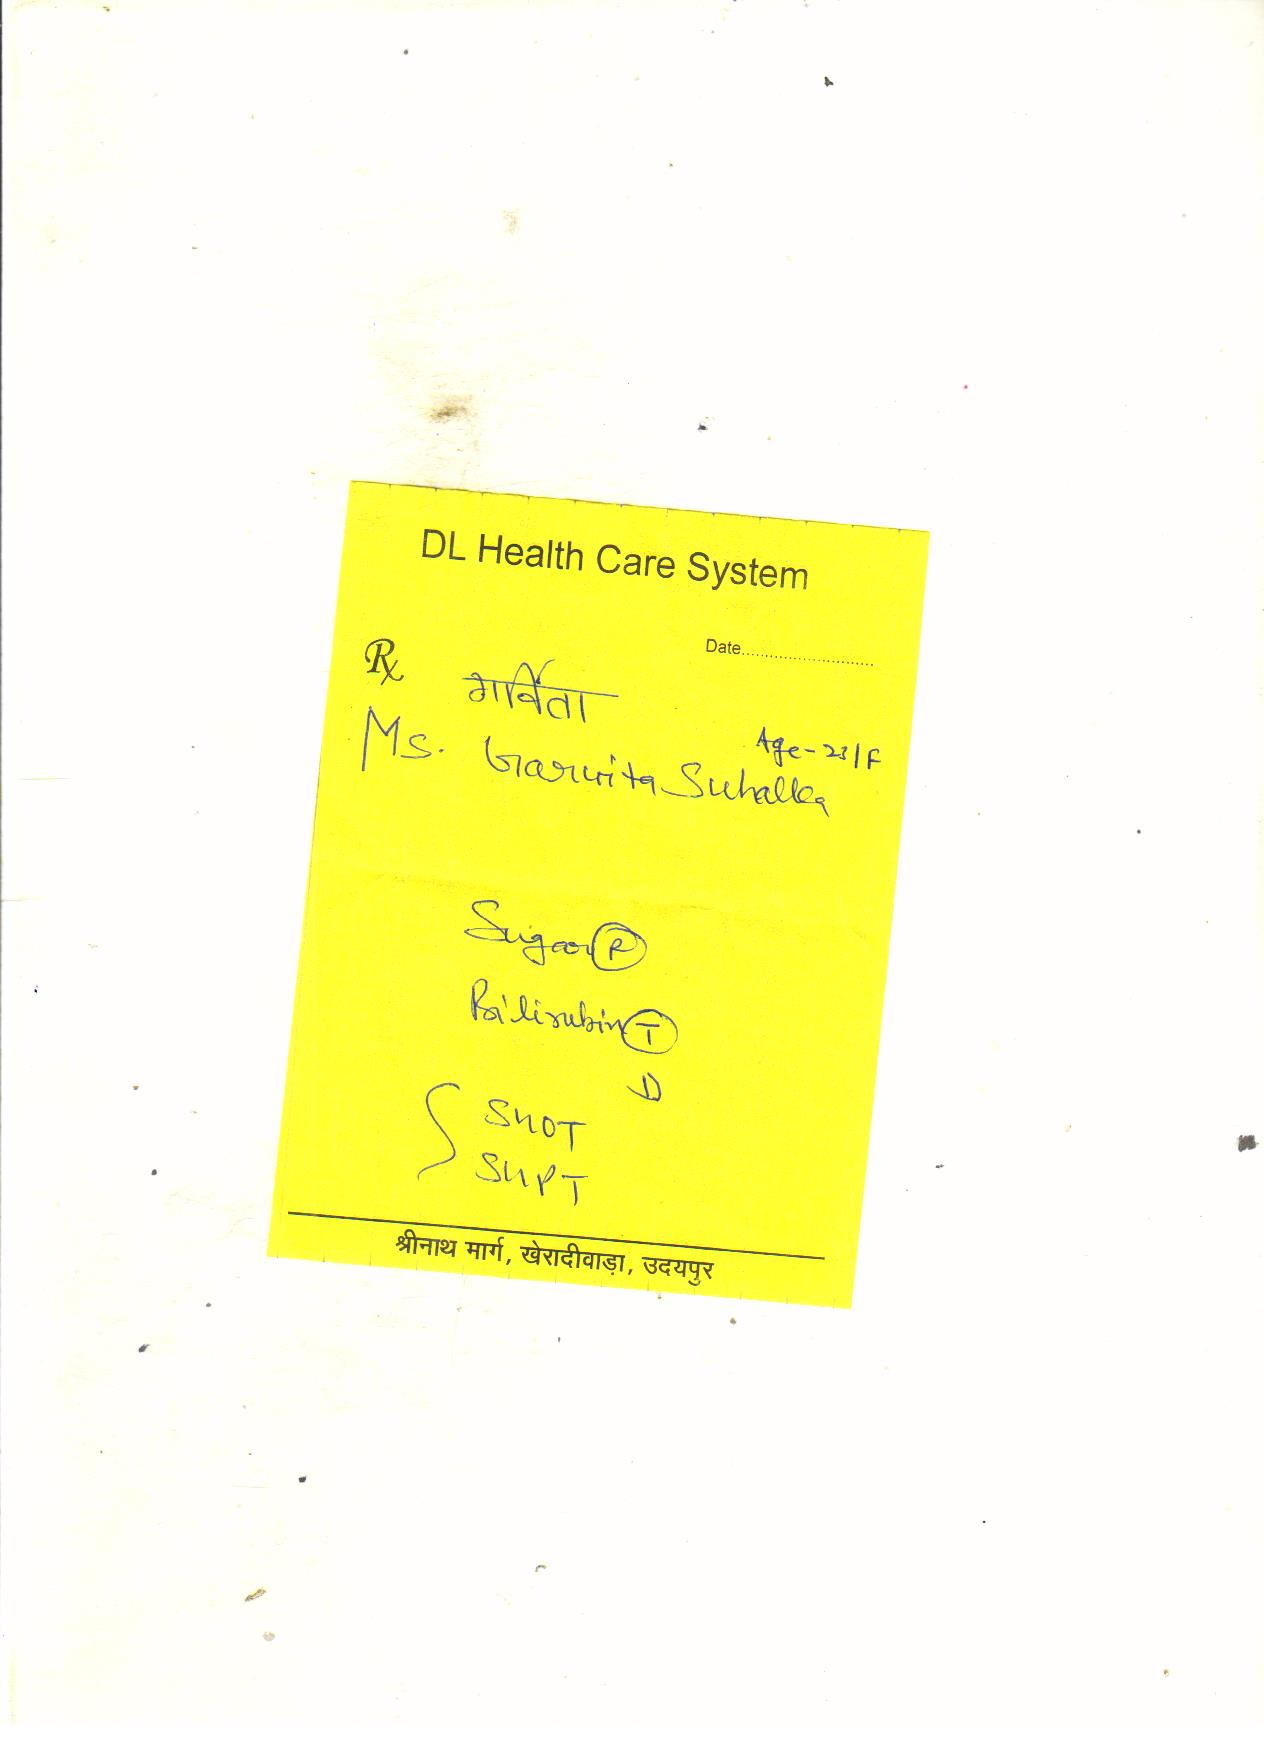 DL Health Care System
Date...........................
Rx गर्विता
Age - 23/F
Ms. Garwita Suhalka
Sugar (R)
Bilirubin (T)
D
{ SGOT
SGPT
श्रीनाथ मार्ग, खेरादीवाड़ा, उदयपुर